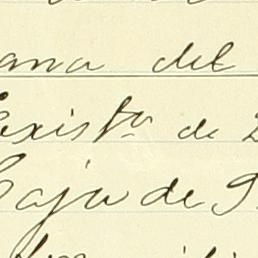 ana del
Exist.ª de
Caja de